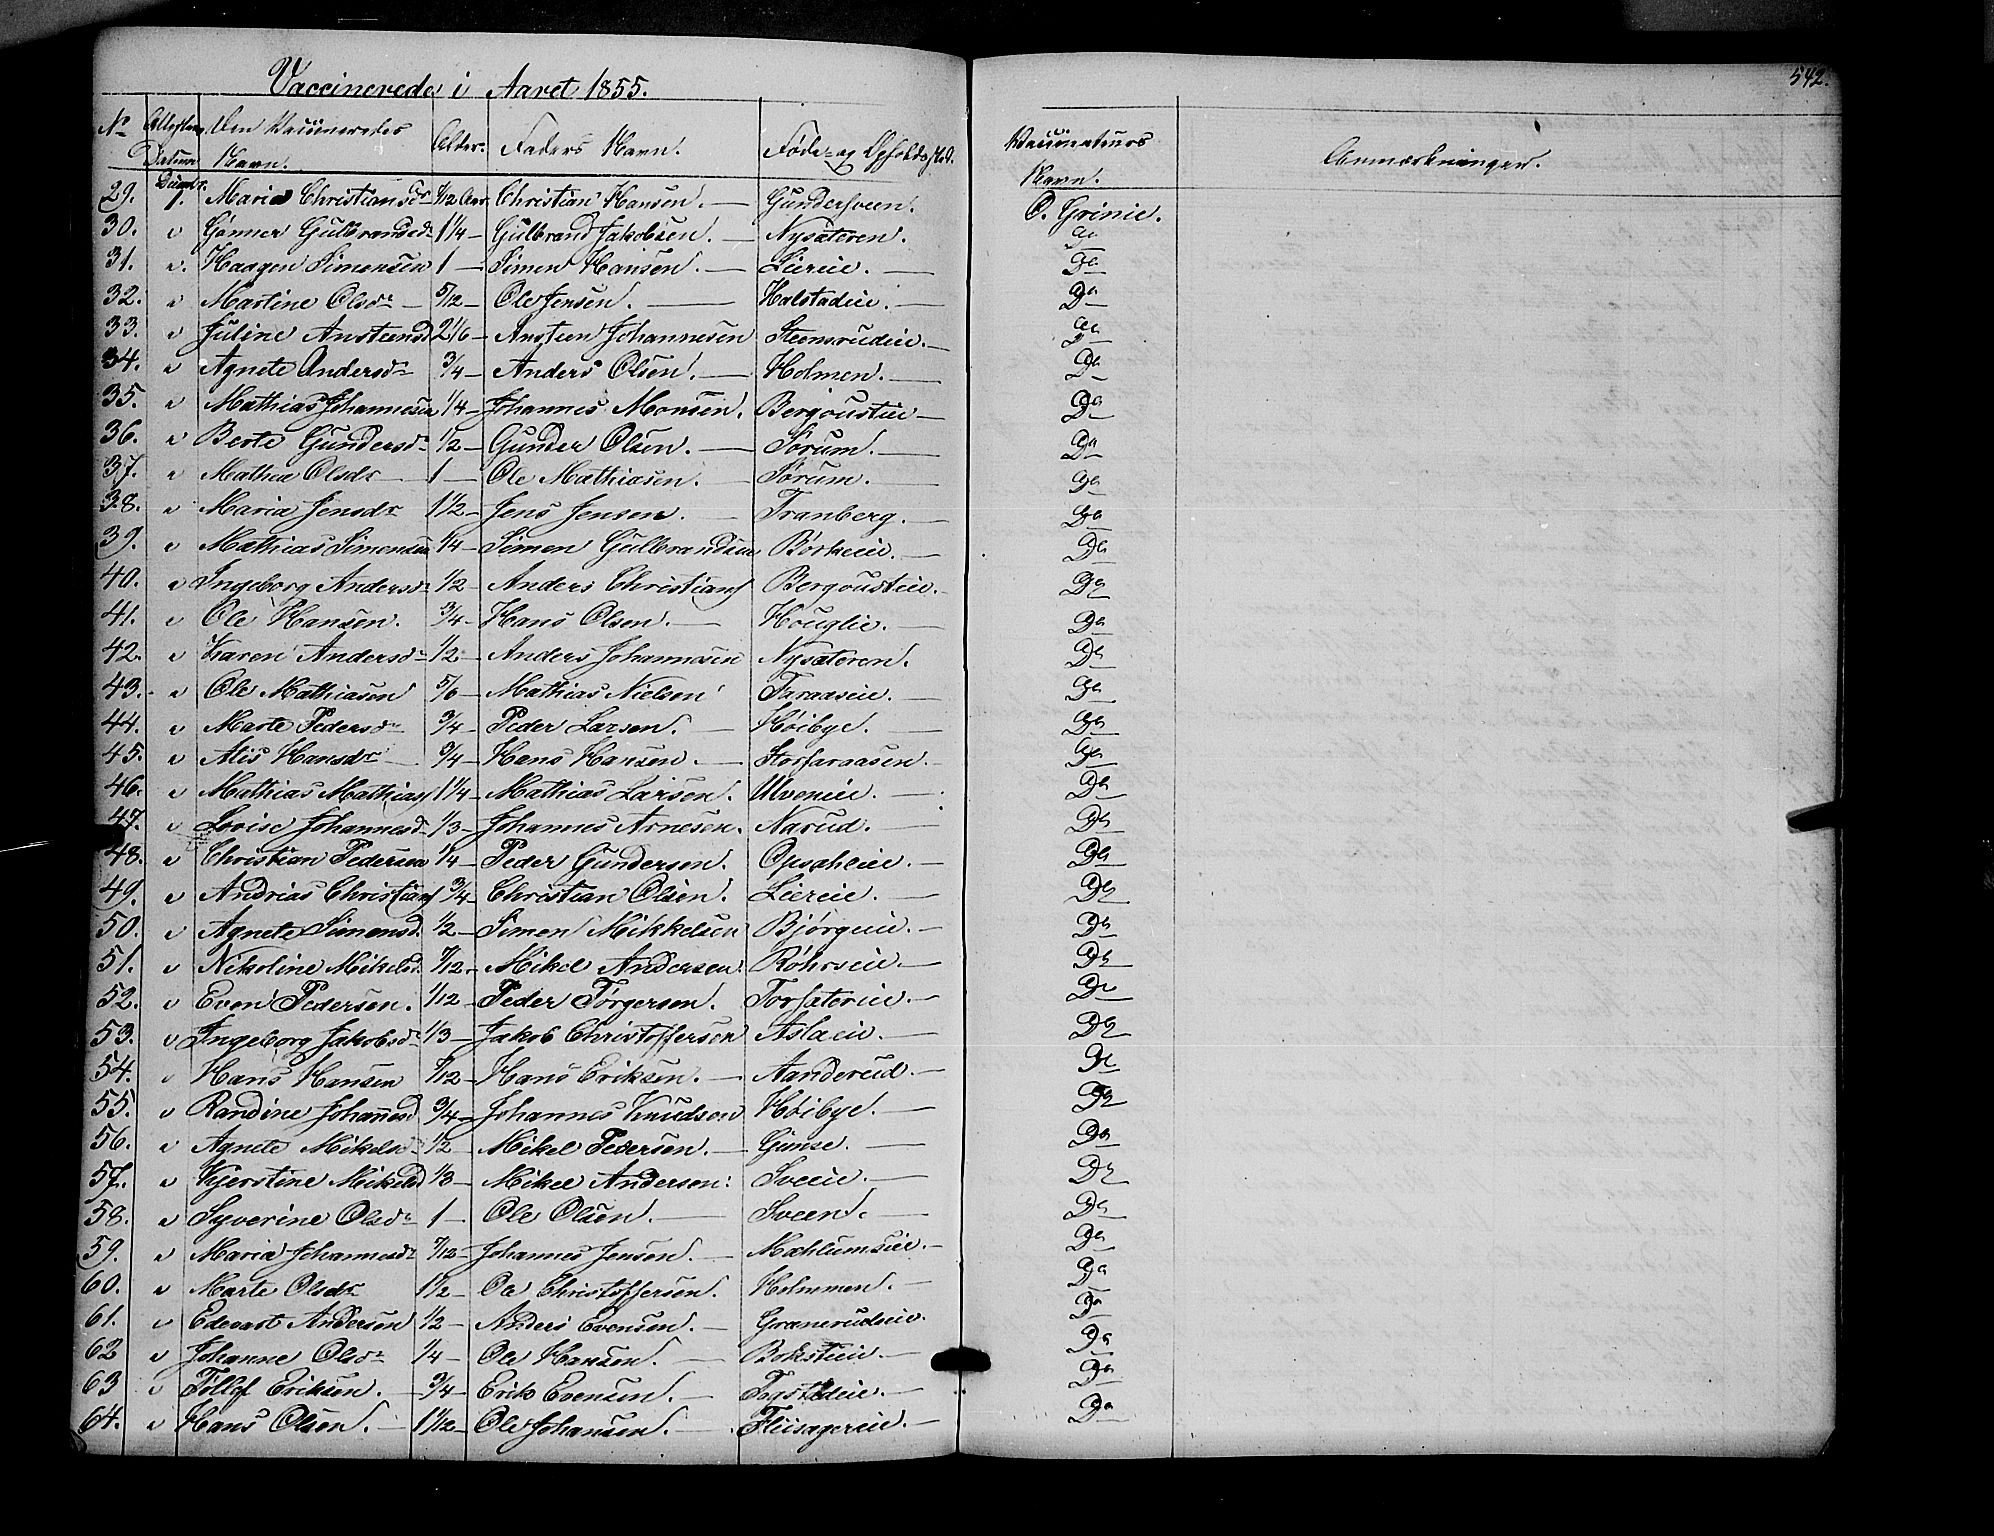 Vaccinerede i Aaret 1855.
542.
No Attestens Datum Den Vaccineredes Navn. Alder. Faders Navn. Føde- og Opholdssted. Vaccinateurs Navn. Anmærkninger.
29. 1. Maria Christiansdr Aar Christian Hansen. — Gundersveen. O. Grinie.
30. " Gunner Gulbrandsd 1 1/4 — Gulbrand Jakobsen. — Nysæteren. Do
31. " Haagen Simensen 1 — Simen Hansen. — Liereie. — Do
32. " Martine Olsdr — 5/12 — Ole Jensen. — Halstadeie. — Do
33. " Juline Anstensd 2 1/6 — Ansten Johannesen Steensrudeie. — Do
34. " Agnete Andersdr 3/4 — Anders Olsen. — Holmen. — Do
35. " Mathias Johannesen 1/4 — Johannes Monsen. Bergousteie — Do
36. " Berte Gundersdr 1/2 — Gunder Olsen. — Sørum. — Do
37. " Mathea Olsdr — 1 — Ole Mathiasen. — Sørum. — Do
38. " Maria Jensdr 1 1/2 — Jens Jensen. — Tranberg. — Do
39. " Mathias Simensen 1/4 — Simen Gulbrandsen Børkeeie. — Do
40. " Ingeborg Andersdr 1/2 — Anders Christians Bergousteie. — Do
41. " Ole Hansen. 3/4 — Hans Olsen. — Houglie. — Do
42. " Karen Andersdr 1/2 — Anders Johannesen Nysæteren. Do
43. " Ole Mathiasen 5/6 — Mathias Nielsen Faraaseie. — Do
44. " Marte Pedersdr 3/4 — Peder Larsen. — Høibye. — Do
45. " Alis Hansdr — 3/4 — Hans Hansen. — Storfaraasen. — Do
46. " Mathias Mathias 1 1/4 — Mathias Larsen. Ulveneie. — Do
47. " Lovise Johannesd 1/3 — Johannes Arnesen. Narud. — Do
48. " Christian Pedersen 1/4 — Peder Gundersen. Opsaheie. — Do
49. " Andrias Christians 3/4 — Christian Olsen. Liereie. — Do
50. " Agnete Simensd. 1/2 — Simen Mikkelsen Bjørgeie. — Do
51. " Nikoline Mikelsd. 7/12 — Mikel Andersen. Røhrseie. — Do
52. " Even Pedersen. 1/12 — Peder Tørgersen. Torsæterie. — Do
53. " Ingeborg Jakobsdr 1/3 — Jakob Christoffersen Aslaeie. — Do
54. " Hans Hansen /12 — Hans Eriksen. — Aanderud. — Do
55. " Randine Johannesd 3/4 — Johannes Knudsen Høibye. — Do
56. " Agnete Mikelsdr 1/2 — Mikel Pedersen. — Gunse. — Do
57. " Kjerstine Mikelsd 1/3 — Mikel Andersen. Sveeie. — Do
58. " Syverine Olsdr 1 — Ole Olsen. — Sveen. — Do
59. " Maria Johannesdr 7/12 — Johannes Jensen. — Mæhlumseie. — Do
60. " Marte Olsdr 1 1/2 — Ole Christoffersen. Holmmen. — Do
61. " Edevart Andersen 1/2 — Anders Evensen. — Grænerudeie. Do
62 " Johanne Olsdr 1/4 — Ole Hansen. — Boksteie. — Do
63 " Tollef Eriksen. — 3/4 — Erik Evensen. — Togstadeie. — Do
64. " Hans Olsen. — 1 1/12 — Ole Johansen. — Fliisagereie. — Do